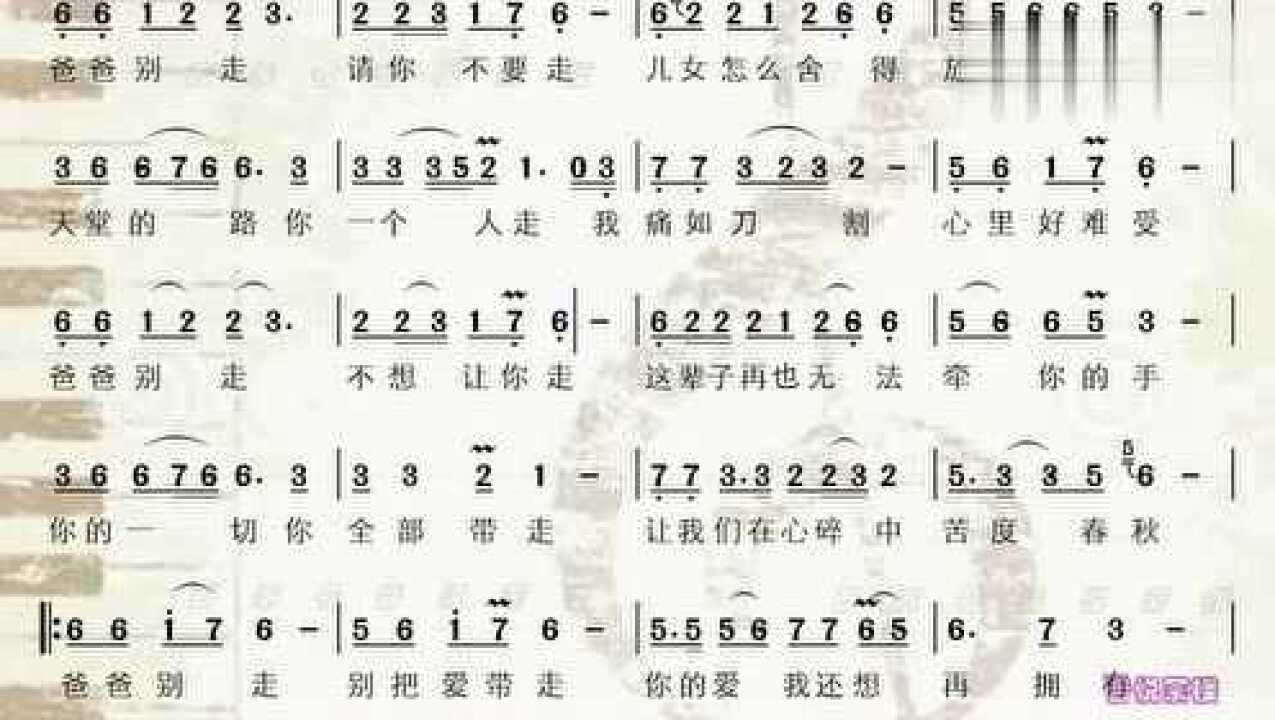 6 6 1 2 2 3. | 2 2 3 1 7 6 – | 6 2 2 1 2 6 6 | 5 5 6 6 5 3 –
爸爸别 走 请你 不要走 儿女怎么舍 得
3 6 6 7 6 6. 3 | 3 3 3 5 2 1. 0 3 | 7 7 3 2 3 2 – | 5 6 1 7 6 – |
天堂的 一路你 一个 人走 我痛如刀 割 心里好难受
6 6 1 2 2 3. | 2 2 3 1 7 6 – | 6 2 2 2 1 2 6 6 | 5 6 6 5 3 – |
爸爸别 走 不想 让你走 这辈子再也无 法 牵 你的手
3 6 6 7 6 6. 3 | 3 3 2 1 – | 7 7 3. 3 2 2 3 2 | 5. 3 3 5 6 – |
你的一 切你 全部 带走 让我们在心碎 中 苦度 春秋
‖: 6 6 i 7 6 – | 5 6 i 7 6 – | 5. 5 5 6 7 7 6 5 | 6. 7 3 – |
爸爸别 走 别把爱带走 你的爱 我还想 再 拥